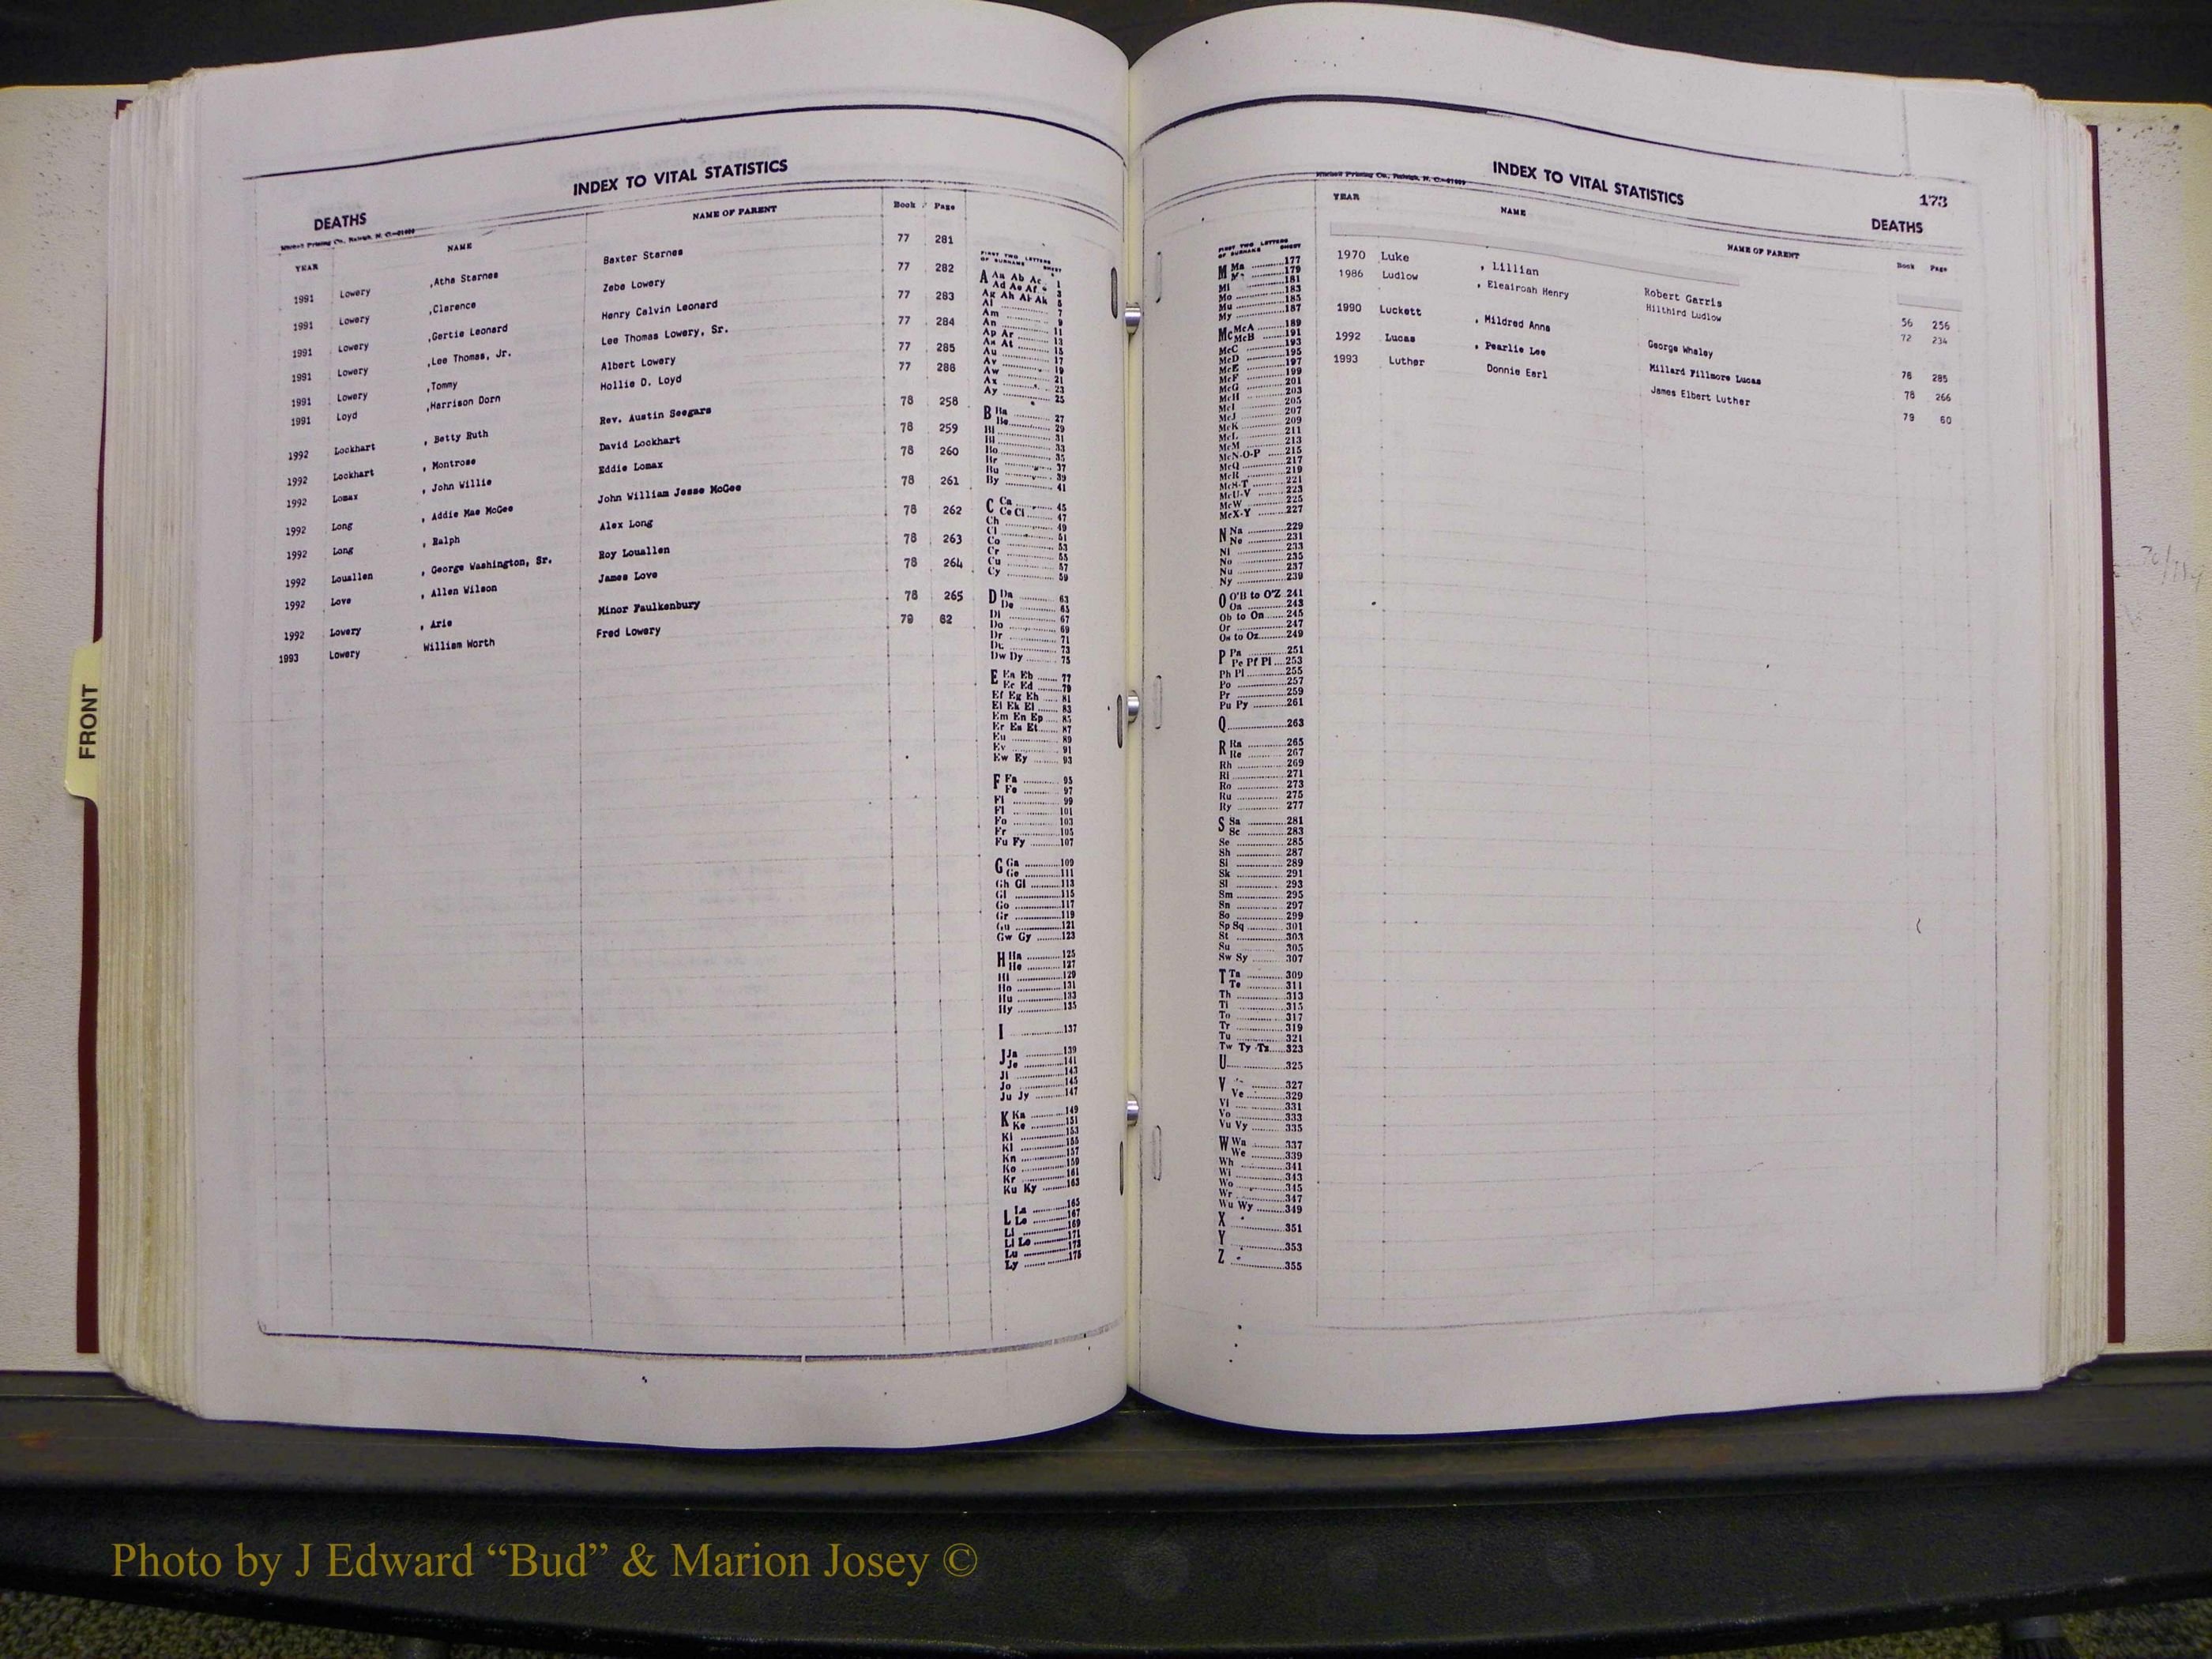 INDEX TO VITAL STATISTICS
DEATHS
Mitchell Printing Co., Raleigh, N. C.
YEAR NAME NAME OF PARENT Book Page
1991 Lowery ,Atha Starnes Baxter Starnes 77 281
1991 Lowery ,Clarence Zebe Lowery 77 282
1991 Lowery ,Gertie Leonard Henry Calvin Leonard 77 283
1991 Lowery ,Lee Thomas, Jr. Lee Thomas Lowery, Sr. 77 284
1991 Lowery ,Tommy Albert Lowery 77 285
1991 Loyd ,Harrison Dorn Hollie D. Loyd 77 286
1992 Lockhart , Betty Ruth Rev. Austin Seegars 78 258
1992 Lockhart , Montrose David Lockhart 78 259
1992 Lomax , John Willie Eddie Lomax 78 260
1992 Long , Addie Mae McGee John William Jesse McGee 78 261
1992 Long , Ralph Alex Long 78 262
1992 Louallen , George Washington, Sr. Roy Louallen 78 263
1992 Love , Allen Wilson James Love 78 264
1992 Lowery , Arie Minor Faulkenbury 78 265
1993 Lowery William Worth Fred Lowery 79 62
FIRST TWO LETTERS
OF SURNAME SHEET
A Aa Ab Ac 1
Ad Ae Af 3
Ag Ah Ai Ak 5
Al 7
An 9
Am 9
Ap Ar 13
As At 15
Au 17
Av 19
Aw 21
Ax 23
Ay 25
B Ba 27
Be 29
Bi 31
Bl 33
Bo 35
Br 37
Bu 39
By 41
C Ca 45
Ce Ci 47
Ch 49
Cl 51
Co 53
Cr 55
Cu 57
Cy 59
D Da 63
De 65
Di 67
Do 69
Dr 71
Du 73
Dw Dy 75
E Ea Eb 77
Ec Ed 79
Ef Eg Eh 81
Ei Ek El 83
Em En Ep 85
Er Es Et 87
Eu 89
Ev 91
Ew Ey 93
F Fa 95
Fe 97
Fi 99
Fl 101
Fo 103
Fr 105
Fu Fy 107
G Ga 109
Ge 111
Gh Gi 113
Gl 115
Go 117
Gr 119
Gu 121
Gw Gy 123
H Ha 125
He 127
Hi 129
Ho 131
Hu 133
Hy 135
I 137
J Ja 139
Je 141
Ji 143
Jo 145
Ju Jy 147
K Ka 149
Ke 151
Ki 153
Kl 155
Kn 157
Ko 159
Kr 161
Ku Ky 163
L La 165
Le 167
Li 169
Ll Lo 171
Lu 173
Ly 175
FRONT
INDEX TO VITAL STATISTICS
173
DEATHS
Mitchell Printing Co., Raleigh, N. C.
YEAR NAME NAME OF PARENT Book Page
1970 Luke , Lillian Robert Garris 56 256
1986 Ludlow , Eleairoah Henry Hilthird Ludlow 72 234
1990 Luckett , Mildred Anna George Whaley 76 285
1992 Lucas , Pearlie Lee Millard Fillmore Lucas 78 266
1993 Luther Donnie Earl James Elbert Luther 79 60
FIRST TWO LETTERS
OF SURNAME SHEET
M Ma 177
179
Mi 181
Mo 183
Mu 185
My 187
Mc McA 189
McB 191
McC 193
McD 195
McE 197
McF 199
McG 201
McH 203
McI 205
McJ 207
McK 209
McL 211
McM 213
McN-O-P 215
McQ 217
McR 219
McS-T 221
McU-V 223
McW 225
McX-Y 227
N Na 229
Ne 231
Ni 233
No 235
Nu 237
Ny 239
O O'B to O'Z 241
Oa 243
Ob to On 245
Or 247
Os to Oz 249
P Pa 251
Pe Pf Pi 253
Ph Pl 255
Po 257
Pr 259
Pu Py 261
Q 263
R Ra 265
Re 267
Rh 269
Ri 271
Ro 273
Ru 275
Ry 277
S Sa 281
Sc 283
Se 285
Sh 287
Si 289
Sk 291
Sl 293
Sm 295
Sn 297
So 299
Sp Sq 301
St 303
Su 305
Sw Sy 307
T Ta 309
Te 311
Th 313
Ti 315
To 317
Tr 319
Tu 321
Tw Ty Tz 323
U 325
V 327
Ve 329
Vi 331
Vo 333
Vu Vy 335
W Wa 337
We 339
Wh 341
Wi 343
Wo 345
Wr 347
Wu Wy 349
X 351
Y 353
Z 355
Photo by J Edward “Bud” & Marion Josey ©